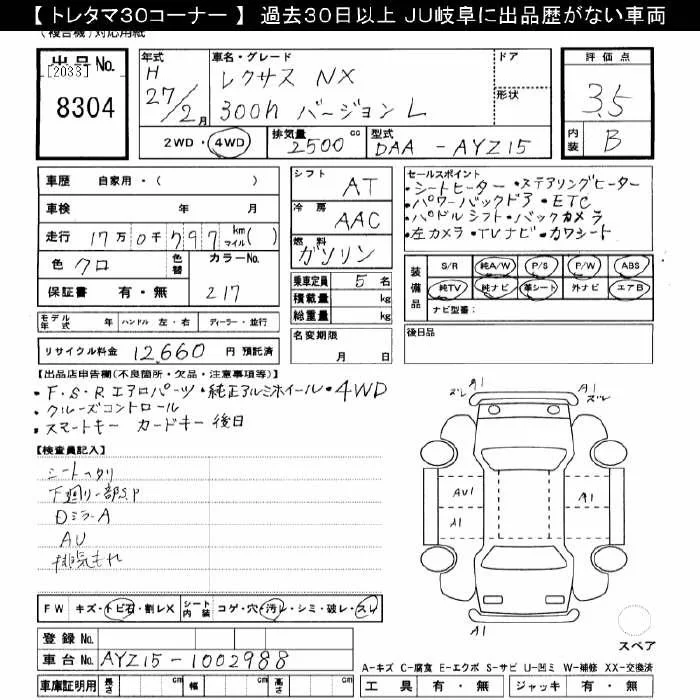 【 トレタマ30コーナー 】 過去30日以上 JU岐阜に出品歴がない車両
(複合機)対応用紙
出品No.
[2033]
8304
年式
H
27/2月
車名・グレード
レクサス NX
300h バージョンL
ドア
形状
2WD・4WD
排気量
2500cc
型式
DAA - AYZ15
評価点
3.5
内装
B
車歴 自家用・( )
車検 年 月
走行 17万0千797 km マイル( )
色 クロ
色替
カラーNo.
217
保証書 有・無
モデル年式 年 ハンドル 左・右 ディーラー・並行
リサイクル料金 12,660 円 預託済
シフト
AT
冷房
AAC
燃料
ガソリン
乗車定員 5 名
積載量 kg
総重量 kg
名変期限
月 日
セールスポイント
・シートヒーター・ステアリングヒーター
・パワーバックドア・ETC
・パドルシフト・バックカメラ
・左カメラ・TVナビ・カワシート
装備品
S/R 純A/W P/S P/W ABS
純TV 純ナビ 革シート 外ナビ エアB
ナビ型番:
後日品
【出品店申告欄(不良箇所・欠品・注意事項等)】
・F・S・Rエアロパーツ・純正アルミホイール・4WD
・クルーズコントロール
・スマートキー カードキー後日
【検査員記入】
シートヘタリ
下廻り一部S.P
DミラーA
AU
排気もれ
A1
ズレ
A1
ズレ
AU1
A1
A1
A1
スペア
FW キズ・トビ石・割レX
シート内装 コゲ・穴・汚レ・シミ・破レ・スレ
登録No.
車台No. AYZ15-1002988
車庫証明用 長さ cm 幅 cm 高さ cm
A-キズ C-腐食 E-エクボ S-サビ U-凹ミ W-補修 XX-交換済
工具 有・無 ジャッキ 有・無